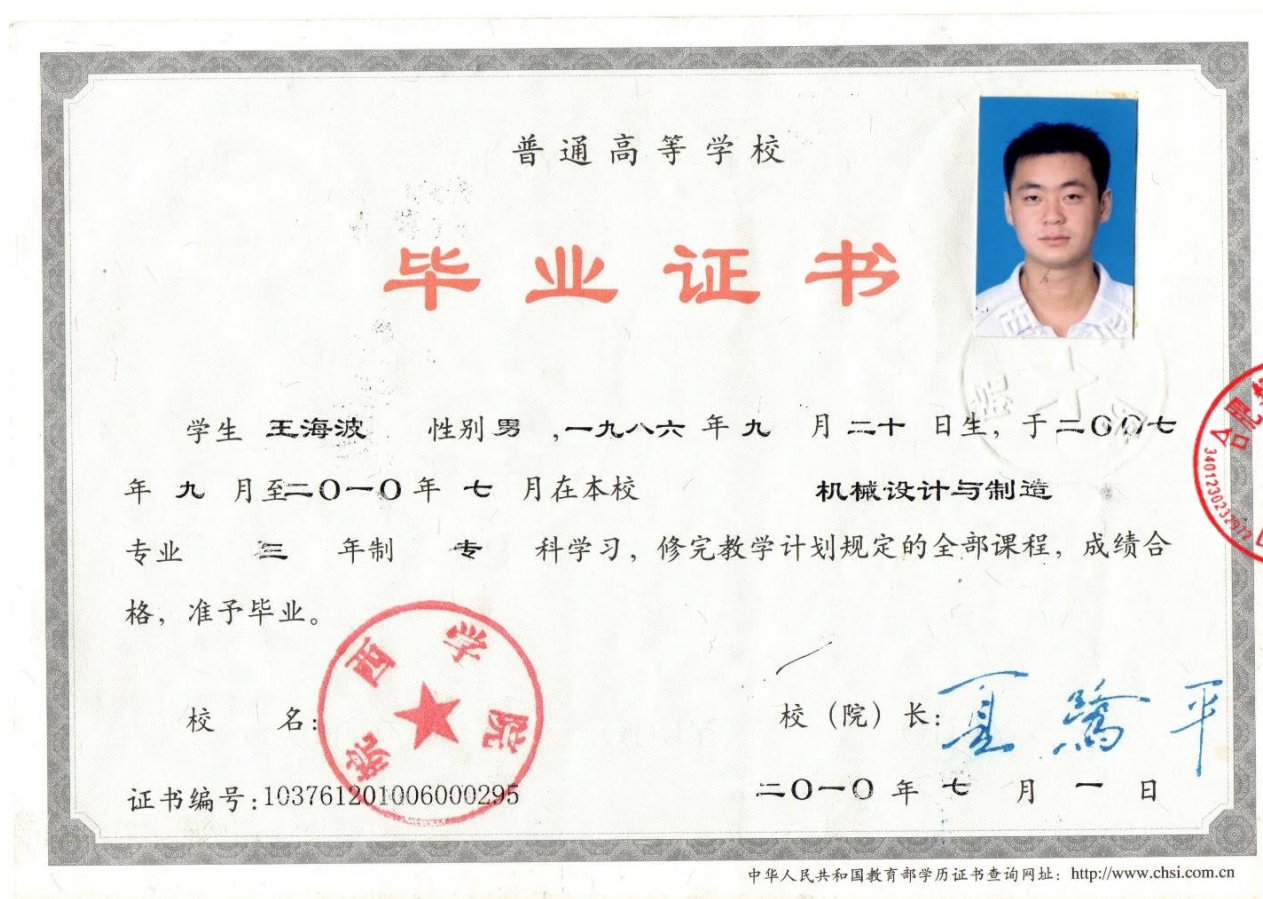 普通高等学校
毕业证书
学生 王海波 性别 男 ,一九八六 年 九 月 二十 日生, 于二〇〇七
年 九 月至二〇一〇 年 七 月在本校 机械设计与制造
专业 三 年制 专 科学习, 修完教学计划规定的全部课程, 成绩合
格, 准予毕业。
皖西学院
校 名:
校（院）长: 夏骄平
证书编号:103761201006000295
二〇一〇 年 七 月 一 日
中华人民共和国教育部学历证书查询网址: http://www.chsi.com.cn